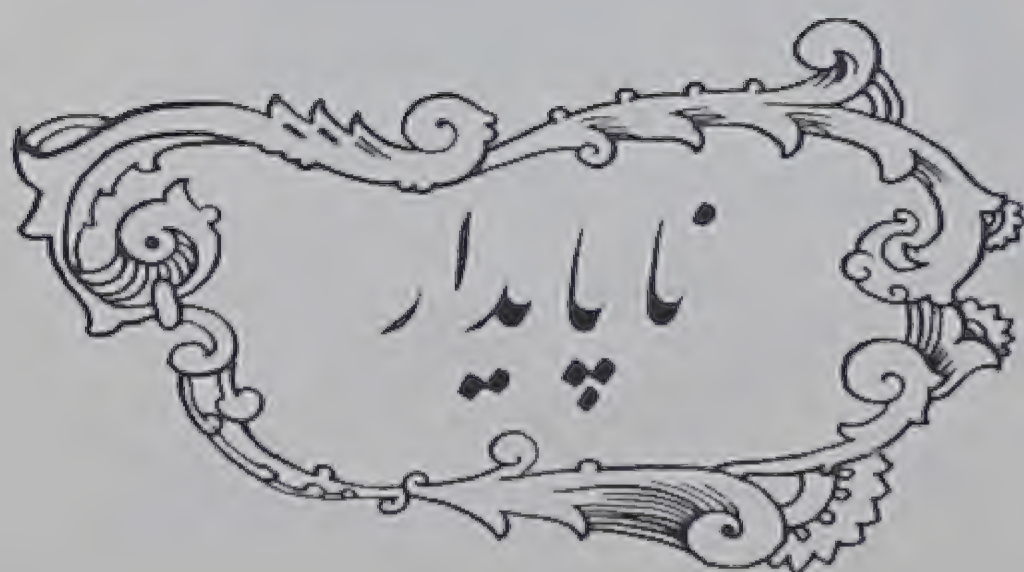 ناپایدار